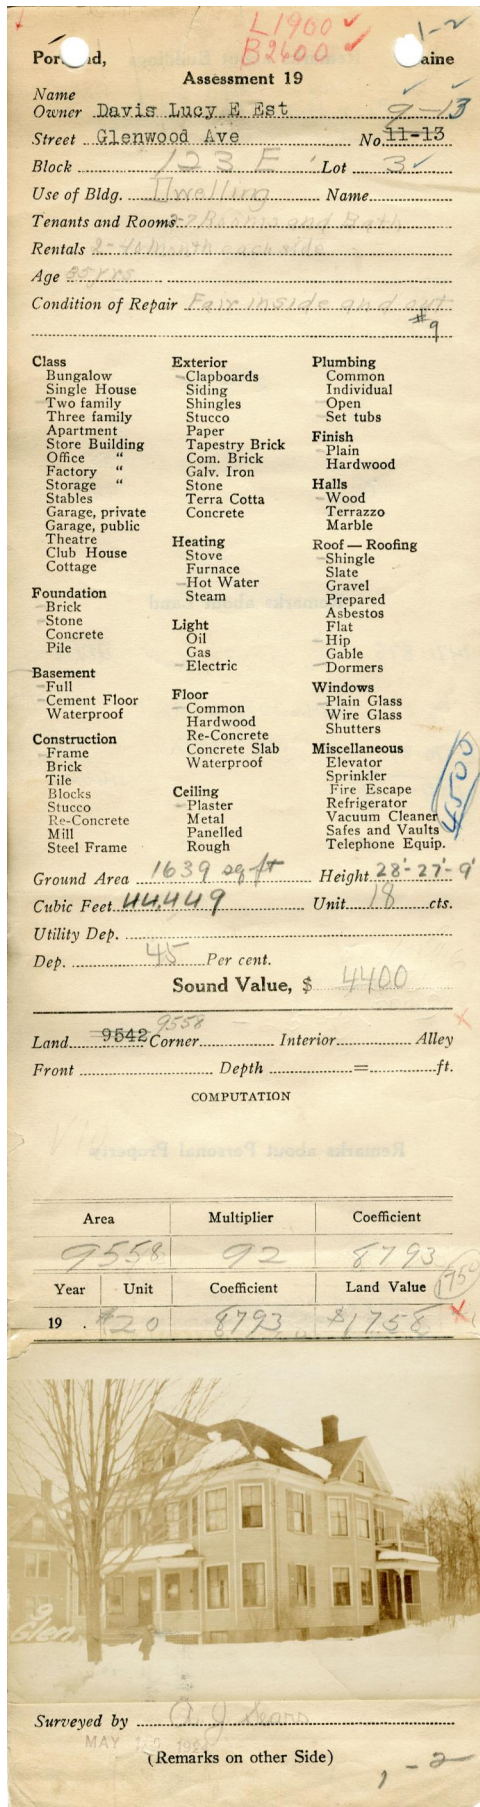 L1900 ✓ 1-2
B2600 ✓
Portland, Maine
Assessment 19
Name
Owner Davis Lucy E Est 9-13
Street Glenwood Ave No. 11-13
Block 123 E Lot 3 ✓
Use of Bldg. Dwelling Name
Tenants and Rooms 2-7 Rooms and Bath
Rentals 2- Month each side
Age 35 yrs
Condition of Repair Fair inside and out
#9
Class
Bungalow
Single House
Two family
Three family
Apartment
Store Building
Office “
Factory “
Storage “
Stables
Garage, private
Garage, public
Theatre
Club House
Cottage
Foundation
Brick
Stone
Concrete
Pile
Basement
Full
Cement Floor
Waterproof
Construction
Frame
Brick
Tile
Blocks
Stucco
Re-Concrete
Mill
Steel Frame
Exterior
Clapboards
Siding
Shingles
Stucco
Paper
Tapestry Brick
Com. Brick
Galv. Iron
Stone
Terra Cotta
Concrete
Heating
Stove
Furnace
Hot Water
Steam
Light
Oil
Gas
Electric
Floor
Common
Hardwood
Re-Concrete
Concrete Slab
Waterproof
Ceiling
Plaster
Metal
Panelled
Rough
Plumbing
Common
Individual
Open
Set tubs
Finish
Plain
Hardwood
Halls
Wood
Terrazzo
Marble
Roof — Roofing
Shingle
Slate
Gravel
Prepared
Asbestos
Flat
Hip
Gable
Dormers
Windows
Plain Glass
Wire Glass
Shutters
Miscellaneous
Elevator
Sprinkler
Fire Escape
Refrigerator
Vacuum Cleaner
Safes and Vaults
Telephone Equip.
4500
Ground Area 1639 sq ft Height 28'-27'-9'
Cubic Feet 44,449 Unit 18 cts.
Utility Dep.
Dep. 45 Per cent.
Sound Value, $ 4400
9558
Land 9542 Corner Interior Alley
Front Depth = ft.
COMPUTATION
Area Multiplier Coefficient
9558 92 8793
Year Unit Coefficient Land Value 1750
19 . $20 8793 $1758
9
Glen
Surveyed by A. J. Sears
MAY
(Remarks on other Side)
1-2